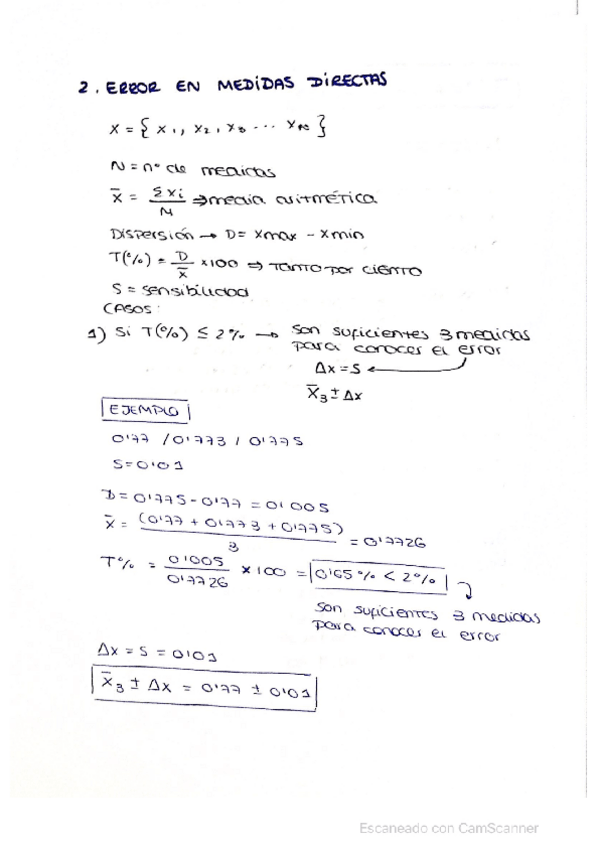 2. ERROR EN MEDIDAS DIRECTAS
X = { x1, x2, x3 ... xN }
N = nº de medidas
x̄ = Σxi / N ⇒ media aritmética
Dispersión → D = xmax - xmin
T(%) = D / x̄ × 100 ⇒ Tanto por ciento
S = sensibilidad
CASOS:
1) Si T(%) ≤ 2% → son suficientes 3 medidas
para conocer el error
Δx = S ←
x̄3 ± Δx
EJEMPLO
0'77 / 0'773 / 0'775
S = 0'01
D = 0'775 - 0'77 = 0'005
x̄ = (0'77 + 0'773 + 0'775) / 3 = 0'7726
T% = 0'005 / 0'7726 × 100 = 0'65% < 2%
son suficientes 3 medidas
para conocer el error
Δx = S = 0'01
x̄3 ± Δx = 0'77 ± 0'01
Escaneado con CamScanner